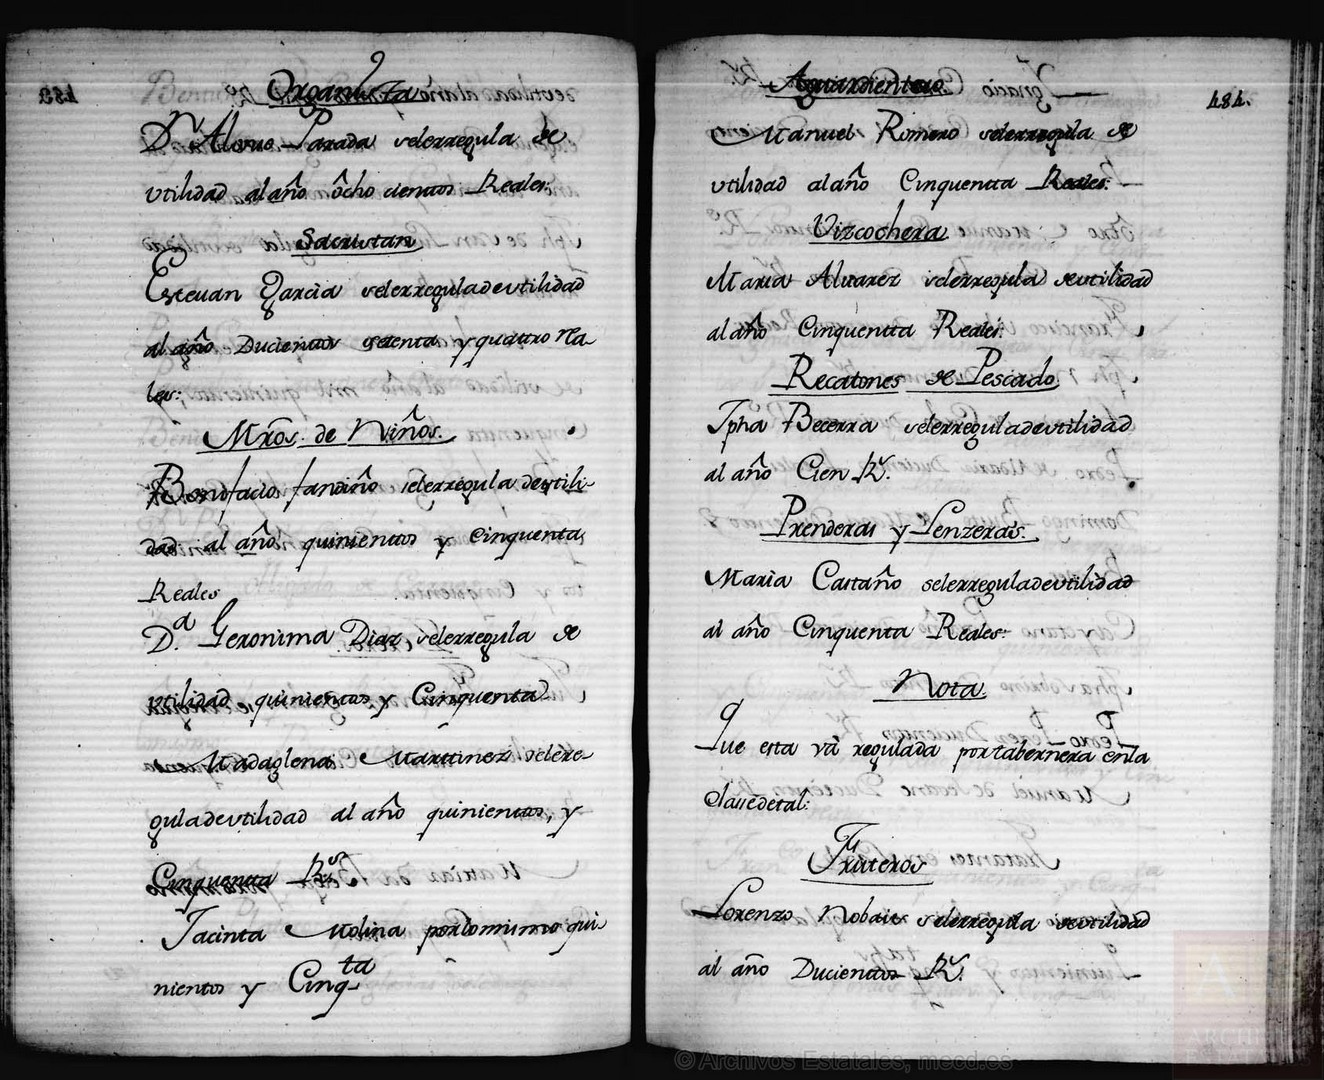 Organista
Dn. Alonso Parada selerregula de
vtilidad al año ôcho cientos Reales;
Sacristan
Esteuan Garcia selerreguladevtilidad
al año Ducientos setenta y quatro rea
les;
Mrõs. de Niños.
Bonifacio fandiño selerregula devtili-
dad al año quinientos y Cinquenta
Reales
Da. Geronima Diaz, selerregula de
vtilidad quinientos y Cinquenta
Madaglena Marttinez selere-
guladevtilidad al año quinientos, y
Cinquenta Rs.
Jacinta Molina porlomismo qui
nientos y Cinqta
484.
Aguardientero
Manuel Romero selerregula de
vtilidad al año Cinquentta Reales.
Vizcochera
Maria Aluarez selerregula devtilidad
al año Cinquentta Reales.
Recatones de Pescado
Jpha Becerra selerreguladevtilidad
al año Cien Rs.
Prenderas y Lenzeras.
Maria Castaño selerreguladevtilidad
al año Cinquenta Reales.
Nota.
Que esta vá regulada portabernera enla
Clasedetal.
Fruteros
Lorenzo Nobais selerregula devtilidad
al año Ducientos Rs.
© Archivos Estatales, mecd.es
ARCHIVOS
ESTATALES